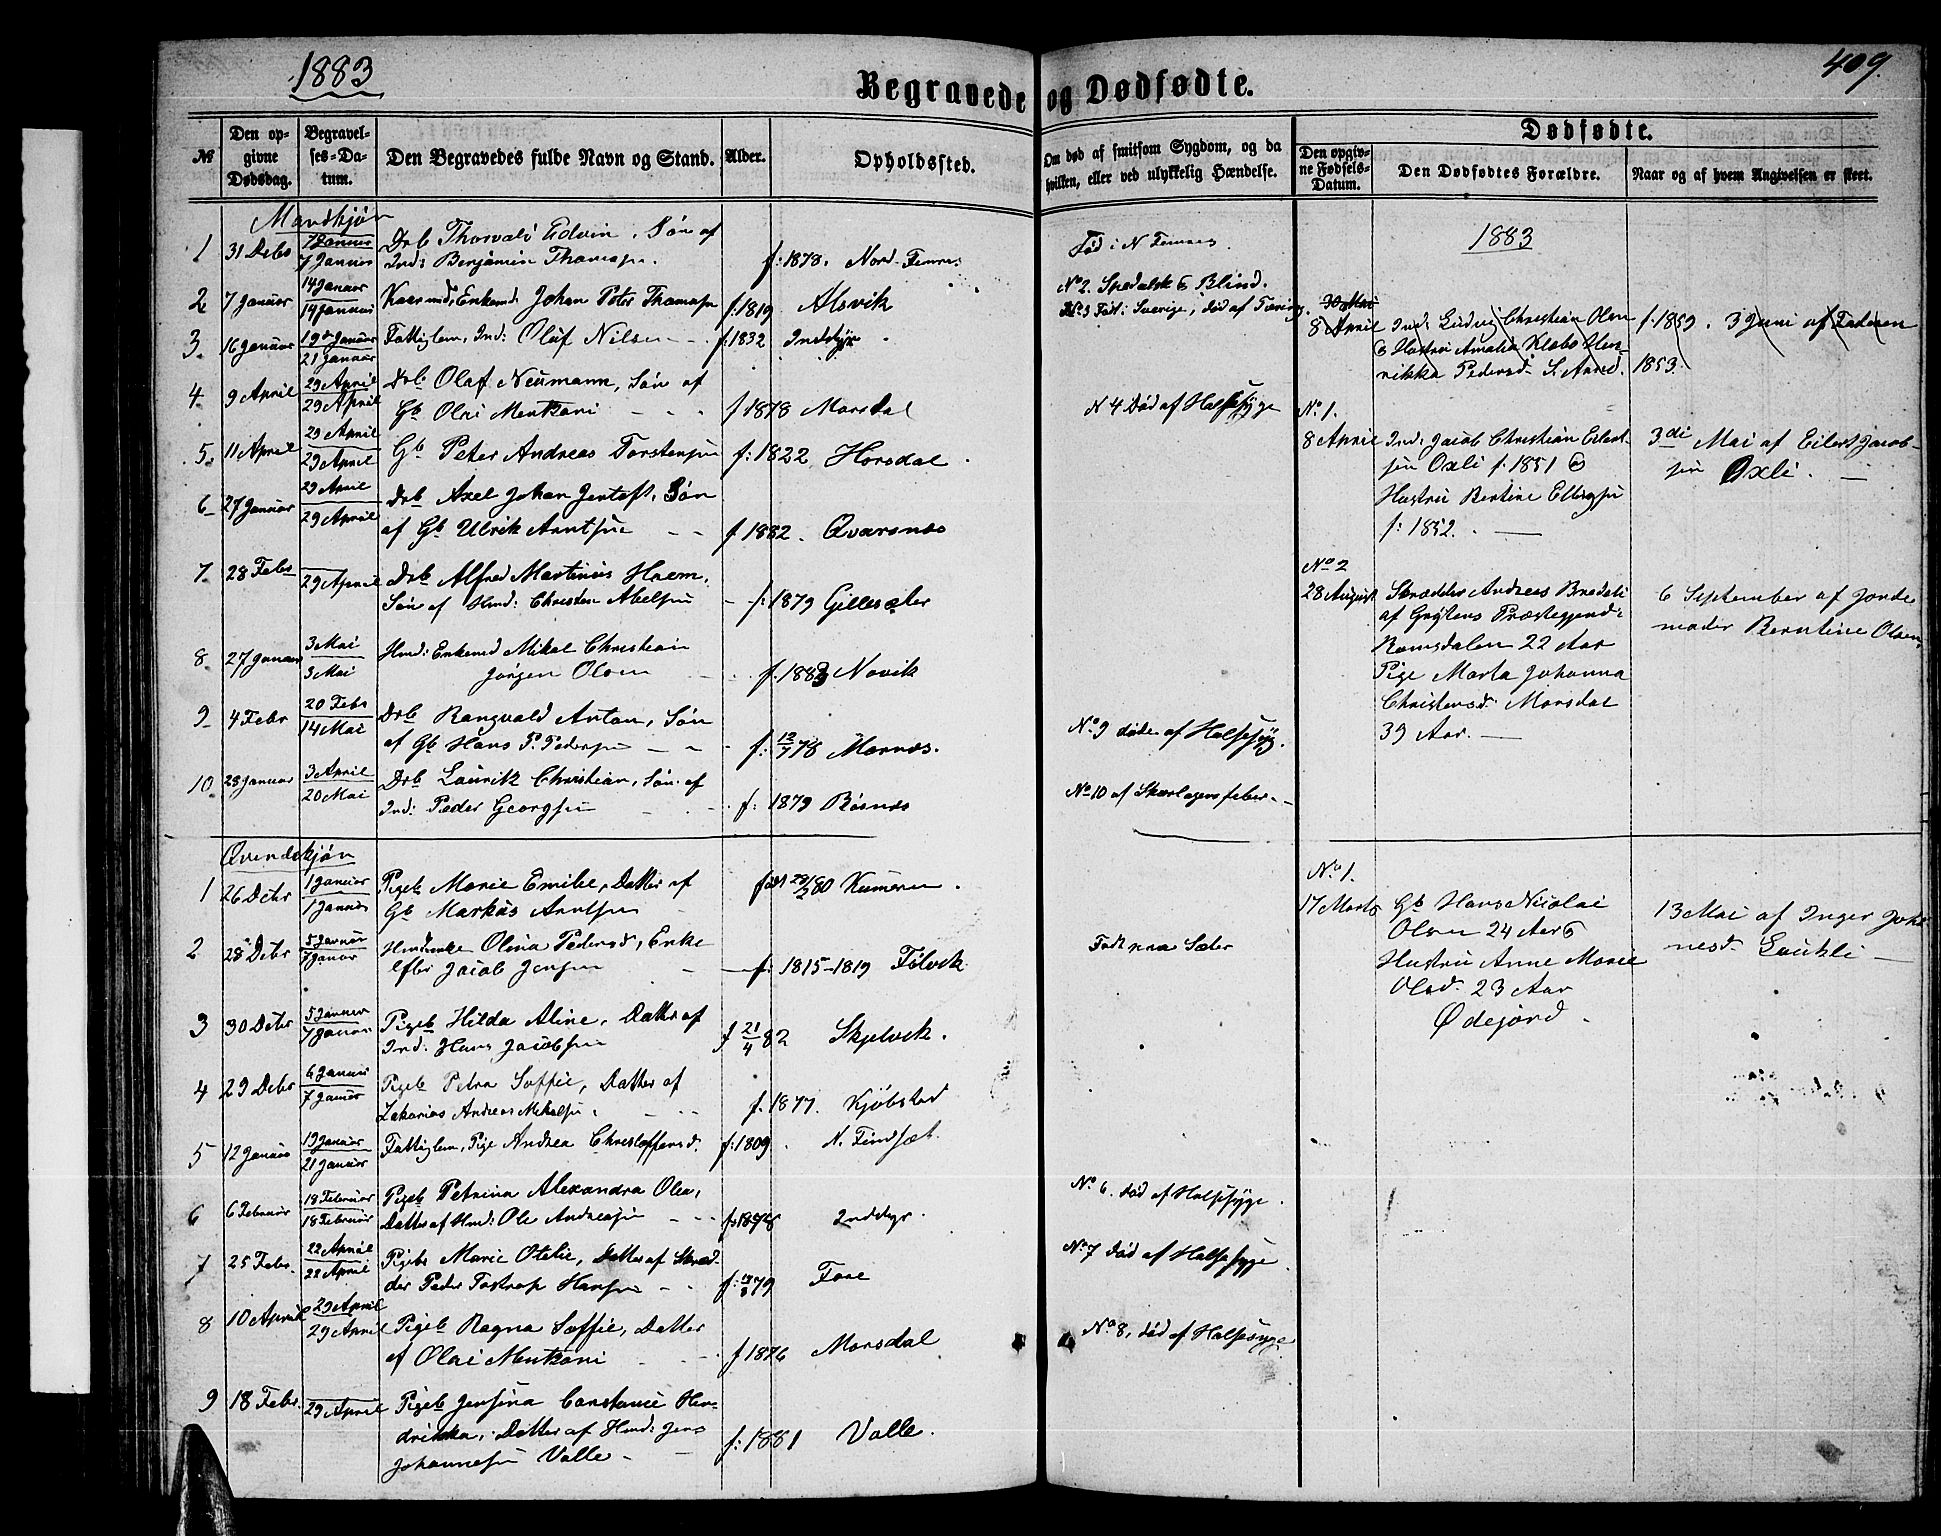 1883
Begravede og Dødfødte.
409.
№
Den opgivne Dødsdag.
Begravelses-Datum.
Den Begravedes fulde Navn og Stand.
Alder.
Opholdssted.
Om død af smitsom Sygdom, og da hvilken, eller ved ulykkelig Hændelse.
Dødfødte.
Den opgivne Fødsels-Datum.
Den Dødfødtes Forældre.
Naar og af hvem Angivelsen er skeet.
Mandkjøn
1 31 Debr 7 Januar 7 Januar Drb Thorvald Edvin, Søn af
Ind: Benjamin Thomasen. f: 1878. Nord-
Fød i N
2 7 Januar 14 Januar 14 Januar Enkemd: Johan Peter Thomasen f. 1819 Alsvik
No 2. Spedalsk & Blind.
3. 16 Januar 19de Januar 21 Januar Fattiglem, Ind: Oluf Nilsen f. 1832 Inddyr
No 3 Født i Sverige, død af Tæring.
4. 9 April 29 April 29 April Drb. Olaf Neumann, Søn af
Gb. Olai Mentzoni f 1878 Morsdal
N 4 Død af Halssyge
5. 11 April 29 April 29 April Gb Peter Andreas Torstensen f: 1822 Horsdal
6 27 Januar 29 April 29 April Drb Axel Johan Jentoft, Søn
af Gb Ulrik Arntsen f. 1882. Qvarsnes
7. 28 Febr 29 April Drb Alfred Martinus
Søn af Hmd: Christen Abelsen f: 1879 Gillesæter
8. 27 Januar 3 Mai 3 Mai Hmd: Enkemd Mikal Christian
Jørgen Olsen f. 1883 Novik
9 4 Febr 20 Febr 14 Mai Drb Rangvald Anton, Søn
af Gb Hans P. Pedersen f: 12/7 78 Mornes.
No 9 døde af Halssyg.
10. 28 Januar 3 April 20 Mai Drb Lauritz Christian, Søn af
Ind: Peder Georgsen f: 1879 Bøsnes
No 10 af Skarlagensfeber.
1883
30 Mai
8 April Ind. Ludvig Christian Olsen f. 1859. 3 Juni af Faderen
& Hustru Amalia Klabo Hen-
rikka Pedersd. S. Arnø. 1853.
No 1.
8 April Ind: Jacob Christian Eilert- 3di Mai af Eilert Jacob-
sen Oxli f. 1851 & sen Oxli.
Hustru Bertine Ellingsen
f: 1852.
No 2
28 August Skrædder Andreas Bredeli 6 September af Jorde
af Grytens Præstegjend i moder Berntine Olsen
Romsdalen 22 Aar
Pige Marta Johanna
Christensd. Morsdal
39 Aar.
Qvindekjøn
1 26 Debr 1 Januar 1 Januar Pigeb Marie Emilie, Datter af
Gb Markus Arntsen født 28/2 80
2 28 Debr 5 Januar 7 Januar Olina Pedersd, Enke
efter Jacob Jensen f. 1815-1819
Født paa Sæter
3 30 Debr 5 Januar 7 Januar Pigeb Hilda Aline, Datter af
Ind: Hans Jacobsen f 21/4 82 Skjelvik.
4 29 Debr 6 Januar 7 Januar Pigeb Petra Soffie, Datter af
Zakarias Andreas Mikalsen f. 1877. Kjøbstad
5 12 Januar 19 Januar 21 Januar Fattiglem, Pige Andrea Christoffersd. f: 1809. N. Findsæt.
6 6 Februar 18 Februar 18 Februar Pigeb Petrina Alexandra Olea,
Datter af Hmd: Ole Andreasen f: 1878 Inddyr.
No 6. død af Halssyge.
7 25 Febr. 22 April 22 April Pigeb Marie Otelie, Datter af Skræd-
der Peder Tostrop Hansen Fore
No 7 død af Halssyge.
8 10 April 29 April 29 April Pigeb Ragna Soffie, Datter
af Olai Mentzoni f 1876 Morsdal
No 8, død af Halssyge
9 18 Febr. 29 April Pigeb Jensina Constance Hen-
drikka, Datter af Hmd: Jens
Johannesen Valle f: 1881 Valle.
No 1.
17 Marts Gb Hans Nicolai 13 Mai af Inger Joha
Olsen 24 Aar & nesd
Hustru Anne Marie
Olsd. 23 Aar
Ødejord.